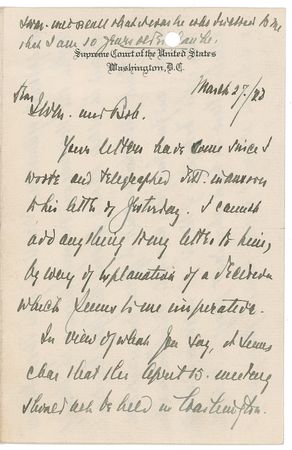 that I am 10 years
Supreme Court of the United States
Washington, D.C.
March 27/
Dear
Your letters have come since I
wrote and telegraphed in answer
to his letter of yesterday. I cannot
add anything to my letter to him,
by way of explanation of a decision
which seems to me imperative.
In view of what you say, it seems
clear that the April 15. meeting
should not be held in Washington.